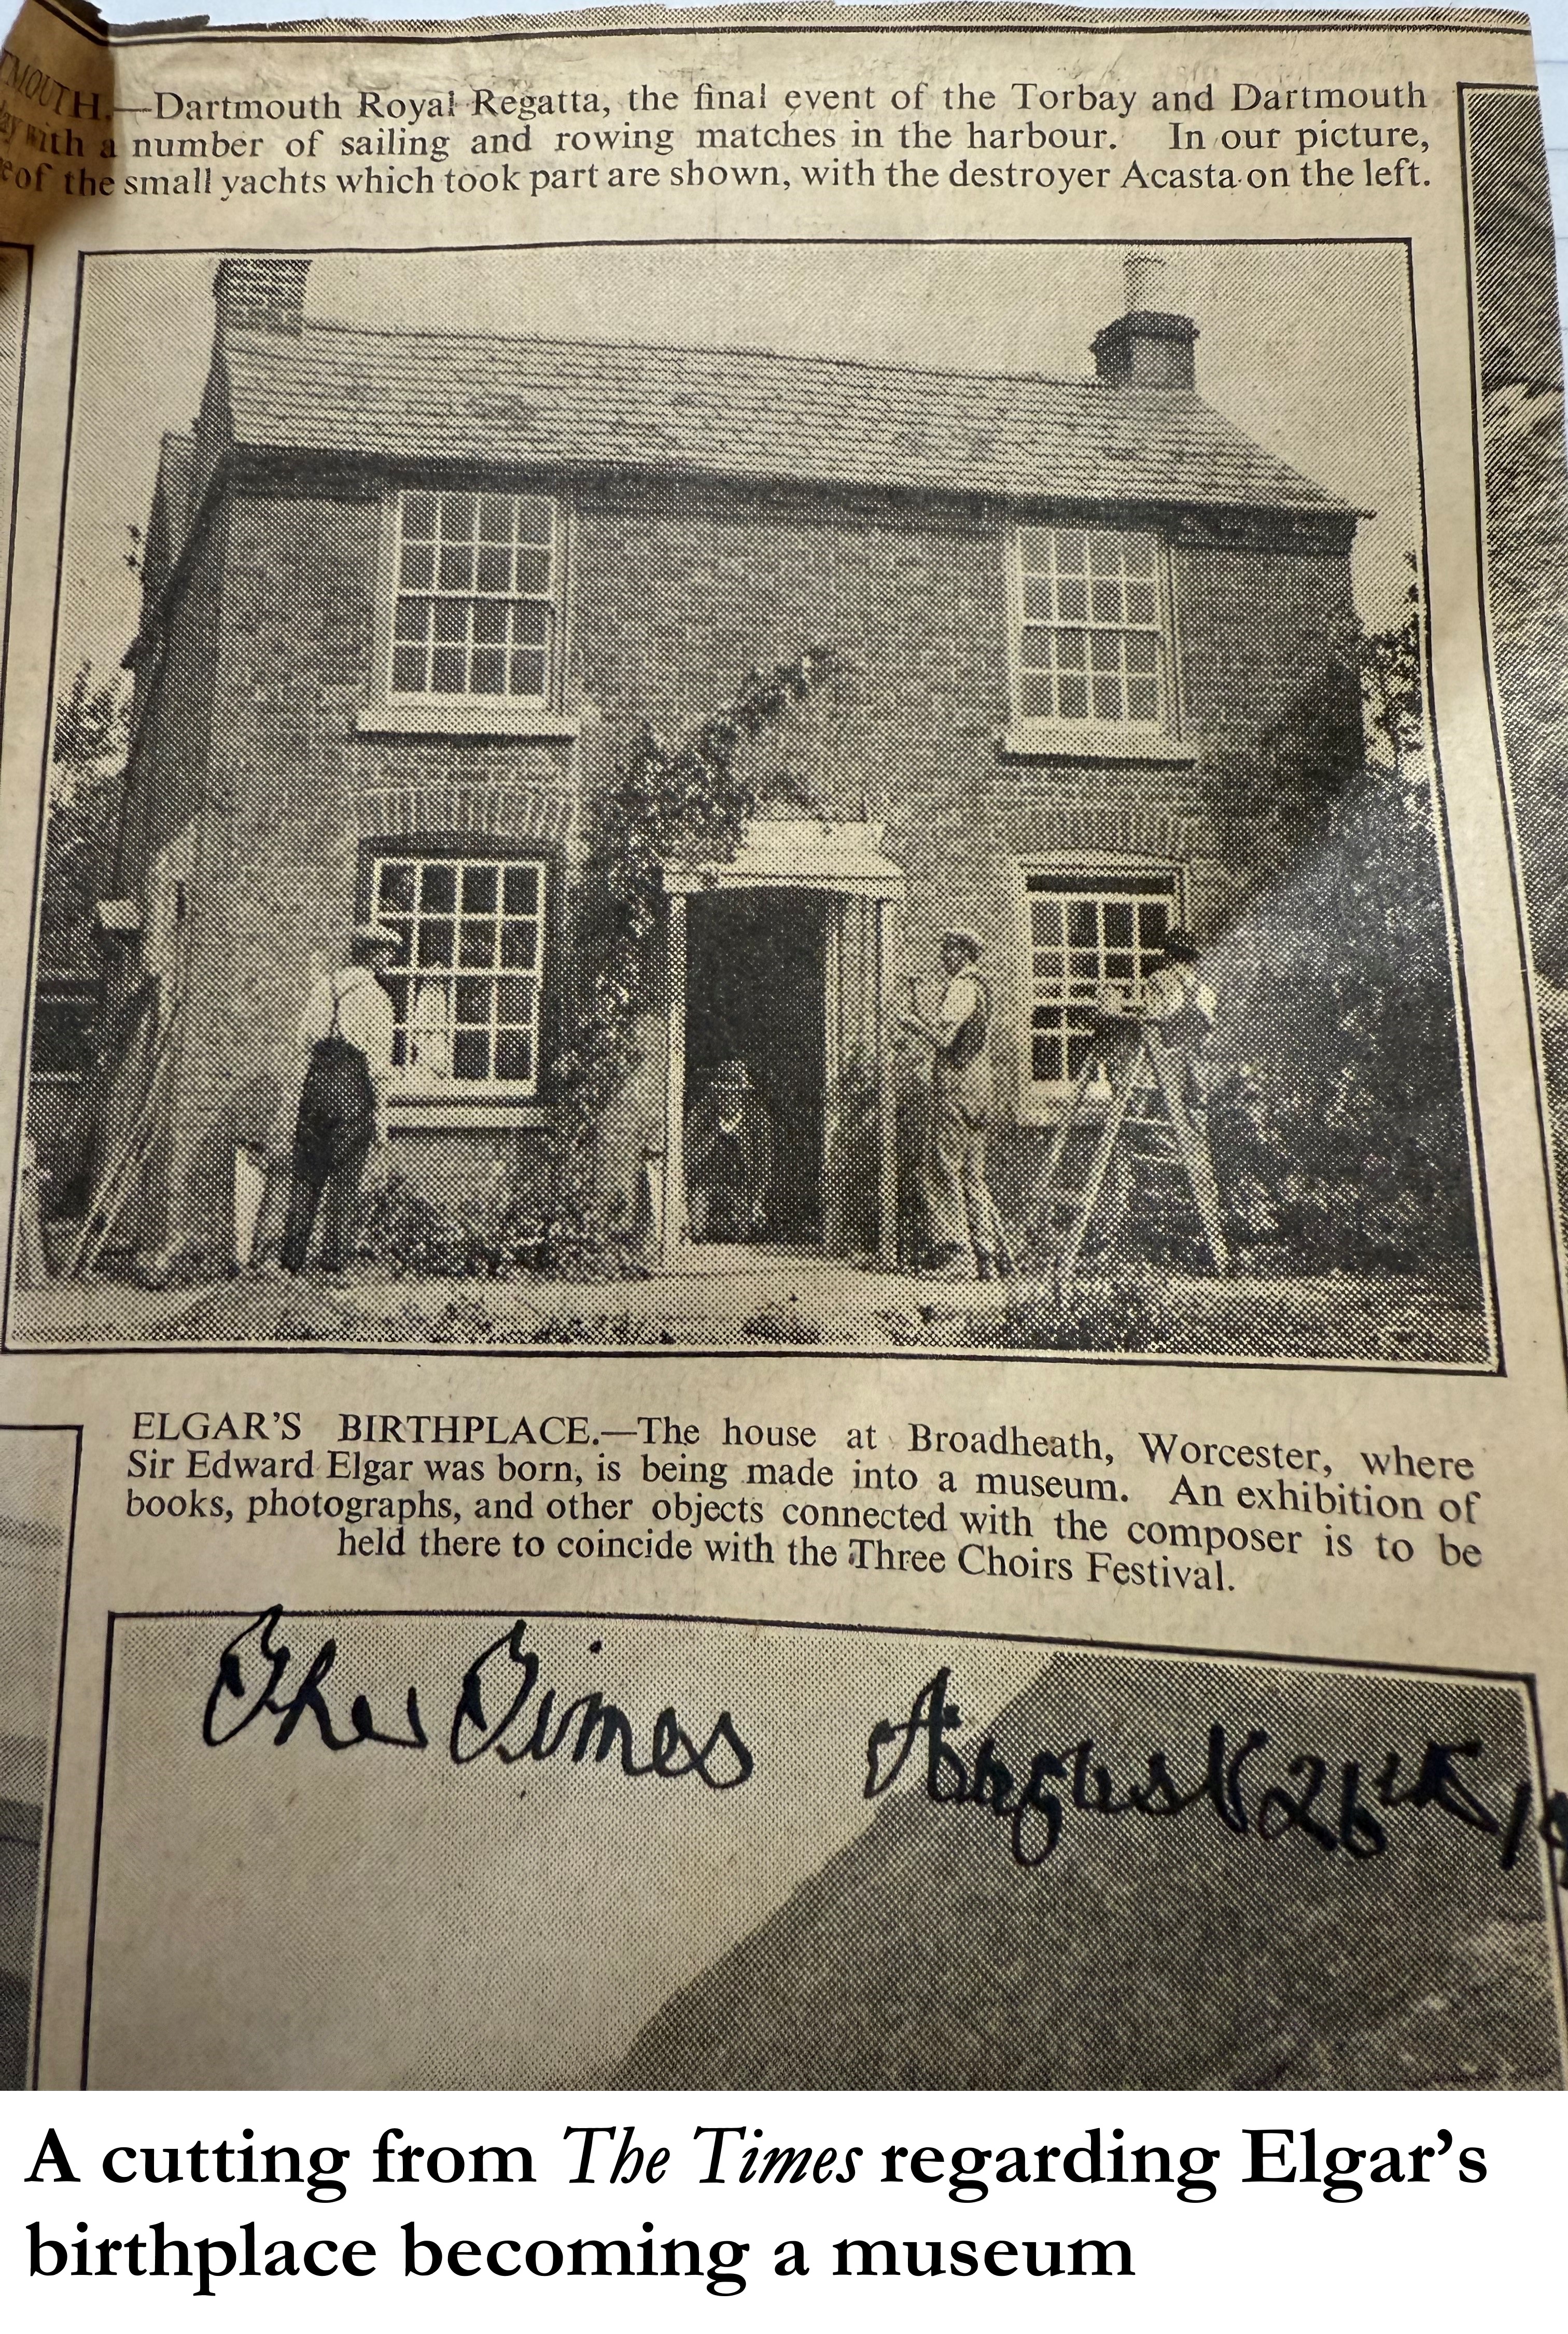 TMOUTH.—Dartmouth Royal Regatta, the final event of the Torbay and Dartmouth
with a number of sailing and rowing matches in the harbour. In our picture,
of the small yachts which took part are shown, with the destroyer Acasta on the left.
ELGAR'S BIRTHPLACE.—The house at Broadheath, Worcester, where
Sir Edward Elgar was born, is being made into a museum. An exhibition of
books, photographs, and other objects connected with the composer is to be
held there to coincide with the Three Choirs Festival.
The Times August 26th
A cutting from The Times regarding Elgar's
birthplace becoming a museum